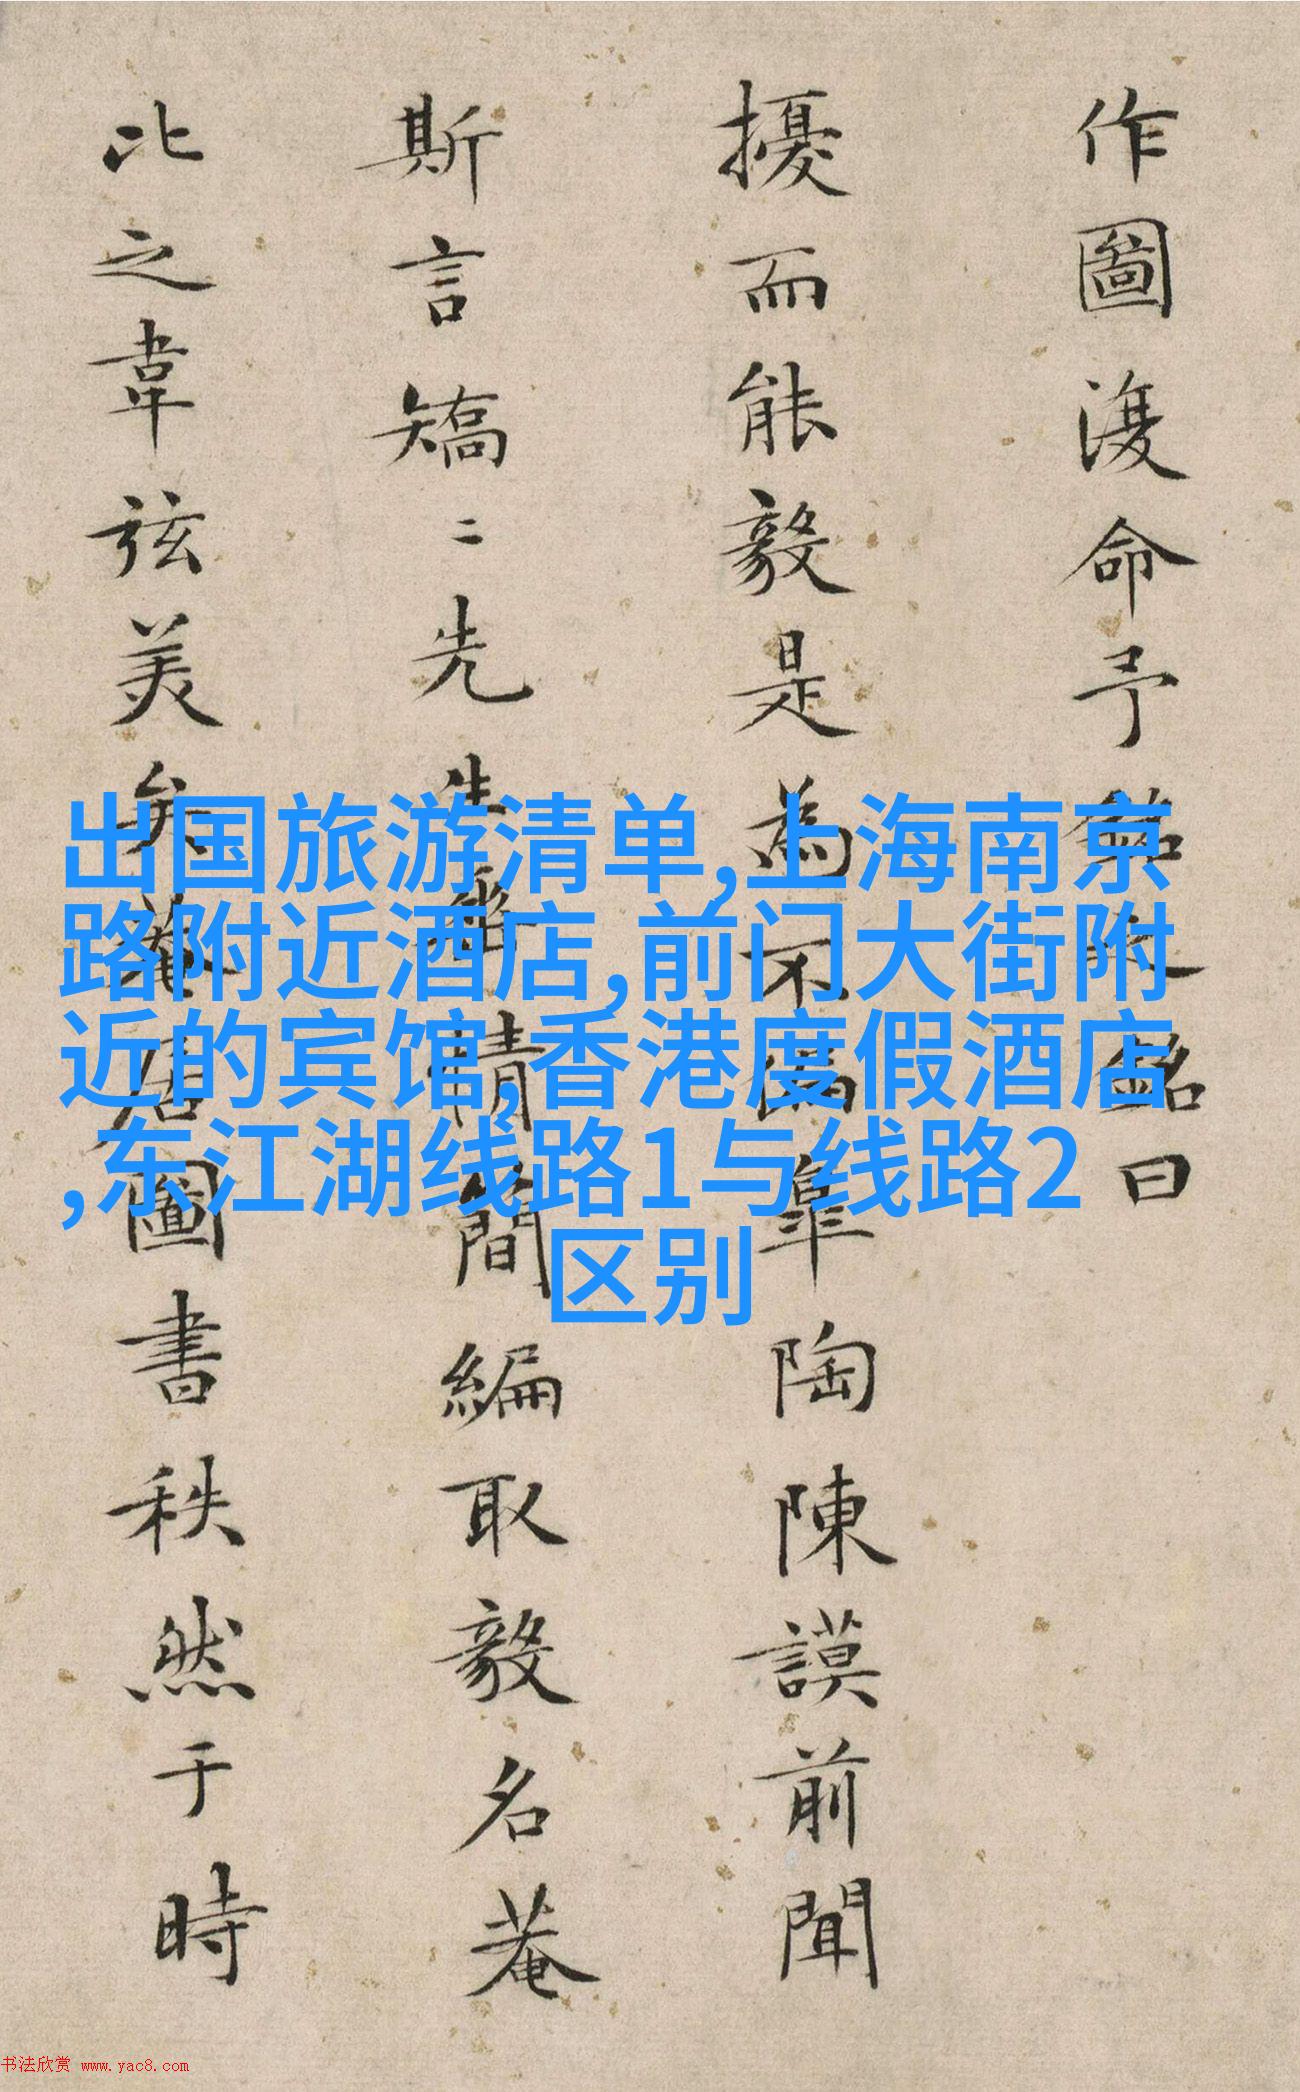 作圖復命予銘之銘曰
擾而能毅是為不偽皐陶陳謨前聞
斯言矯二先生磐情簡編取毅名菴
比之韋弦美矣菴居圖書秩然于時
出国旅游清单,上海南京
路附近酒店,前门大街附
近的宾馆,香港度假酒店
,东江湖线路1与线路2
区别
书法欣赏 www.yac8.com